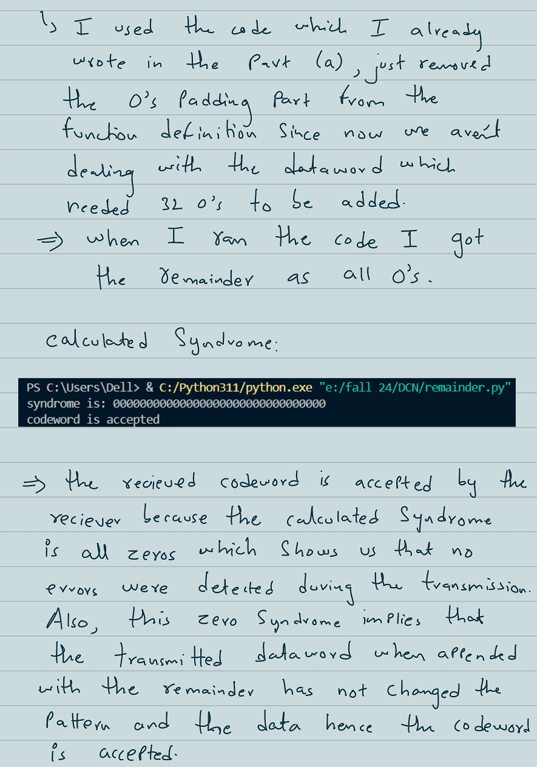 ↳ I used the code which I already
wrote in the Part (a), just removed
the 0's Padding Part from the
function definition Since now we aren't
dealing with the dataword which
needed 32 0's to be added.
⇒ when I ran the code I got
the remainder as all 0's.
Calculated Syndrome:
PS C:\Users\Dell> & C:/Python311/python.exe "e:/fall 24/DCN/remainder.py"
syndrome is: 00000000000000000000000000000000
codeword is accepted
⇒ the recieved codeword is accepted by the
reciever because the calculated Syndrome
is all zeros which Shows us that no
errors were detected during the transmission.
Also, this zero Syndrome implies that
the transmitted dataword when appended
with the remainder has not changed the
Pattern and the data hence the codeword
is accepted.